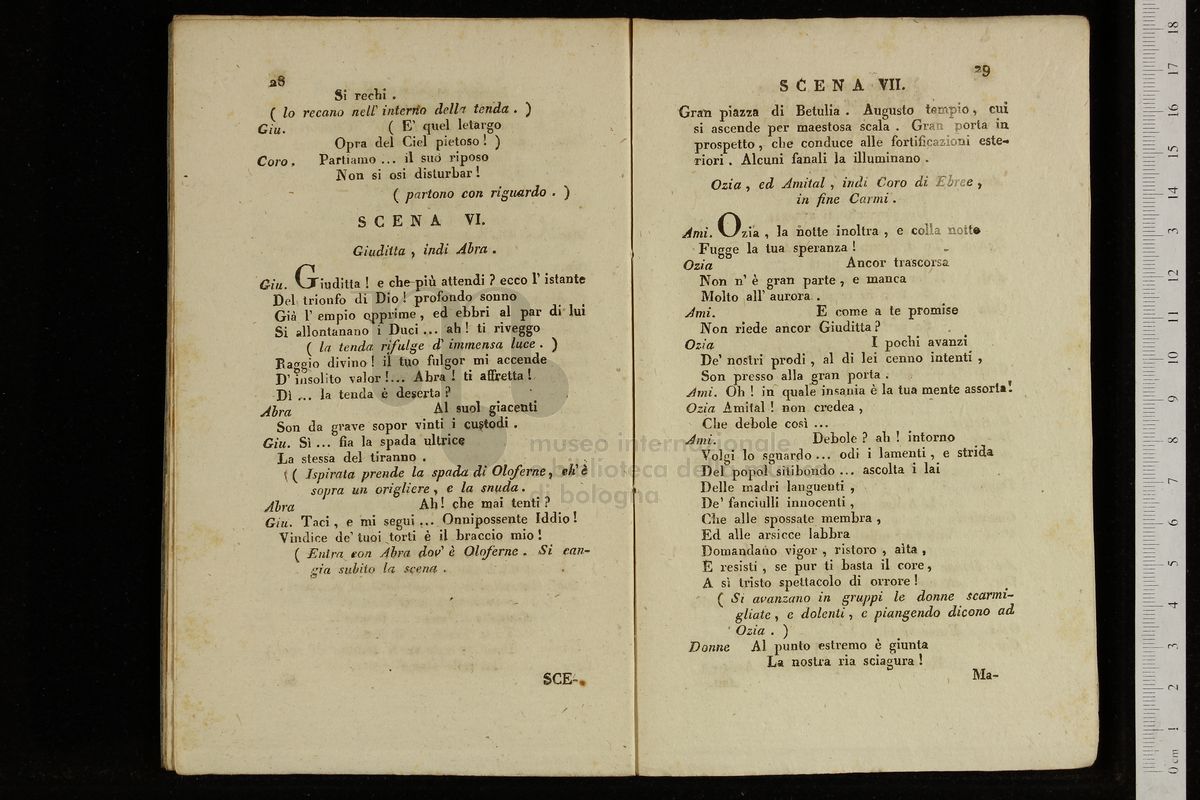 28
Si rechi .
( lo recano nell' interno della tenda . )
Giu. ( E' quel letargo
Opra del Ciel pietoso ! )
Coro . Partiamo ... il suo riposo
Non si osi disturbar !
( partono con riguardo . )
SCENA VI.
Giuditta , indi Abra .
Giu. Giuditta ! e che più attendi ? ecco l' istante
Del trionfo di Dio ! profondo sonno
Già l' empio opprime , ed ebbri al par di lui
Si allontanano i Duci ... ah ! ti riveggo
( la tenda rifulge d' immensa luce . )
Raggio divino ! il tuo fulgor mi accende
D' insolito valor !... Abra ! ti affretta !
Dì ... la tenda è deserta ?
Abra Al suol giacenti
Son da grave sopor vinti i custodi .
Giu. Sì ... fia la spada ultrice
La stessa del tiranno .
( Ispirata prende la spada di Oloferne , ch' è
sopra un origliere , e la snuda .
Abra Ah! che mai tenti ?
Giu. Taci , e mi segui ... Onnipossente Iddio !
Vindice de' tuoi torti è il braccio mio !
( Entra con Abra dov' è Oloferne . Si can-
gia subito la scena .
SCE-
29
SCENA VII.
Gran piazza di Betulia . Augusto tempio , cui
si ascende per maestosa scala . Gran porta in
prospetto , che conduce alle fortificazioni este-
riori . Alcuni fanali la illuminano .
Ozia , ed Amital , indi Coro di Ebree ,
in fine Carmi .
Ami. Ozia , la notte inoltra , e colla notte
Fugge la tua speranza !
Ozia Ancor trascorsa
Non n' è gran parte , e manca
Molto all' aurora .
Ami. E come a te promise
Non riede ancor Giuditta ?
Ozia I pochi avanzi
De' nostri prodi , al di lei cenno intenti ,
Son presso alla gran porta .
Ami. Oh ! in quale insania è la tua mente assorta!
Ozia Amital ! non credea ,
Che debole così ...
Ami. Debole ? ah ! intorno
Volgi lo sguardo ... odi i lamenti , e strida
Del popol sitibondo ... ascolta i lai
Delle madri languenti ,
De' fanciulli innocenti ,
Che alle spossate membra ,
Ed alle arsicce labbra
Domandano vigor , ristoro , aita ,
E resisti , se pur ti basta il core ,
A sì tristo spettacolo di orrore !
( Si avanzano in gruppi le donne scarmi-
gliate , e dolenti , e piangendo dicono ad
Ozia . )
Donne Al punto estremo è giunta
La nostra ria sciagura !
Ma-
museo internazionale
e biblioteca della musica
di bologna
0 cm 1 2 3 4 5 6 7 8 9 10 11 12 13 14 15 16 17 18